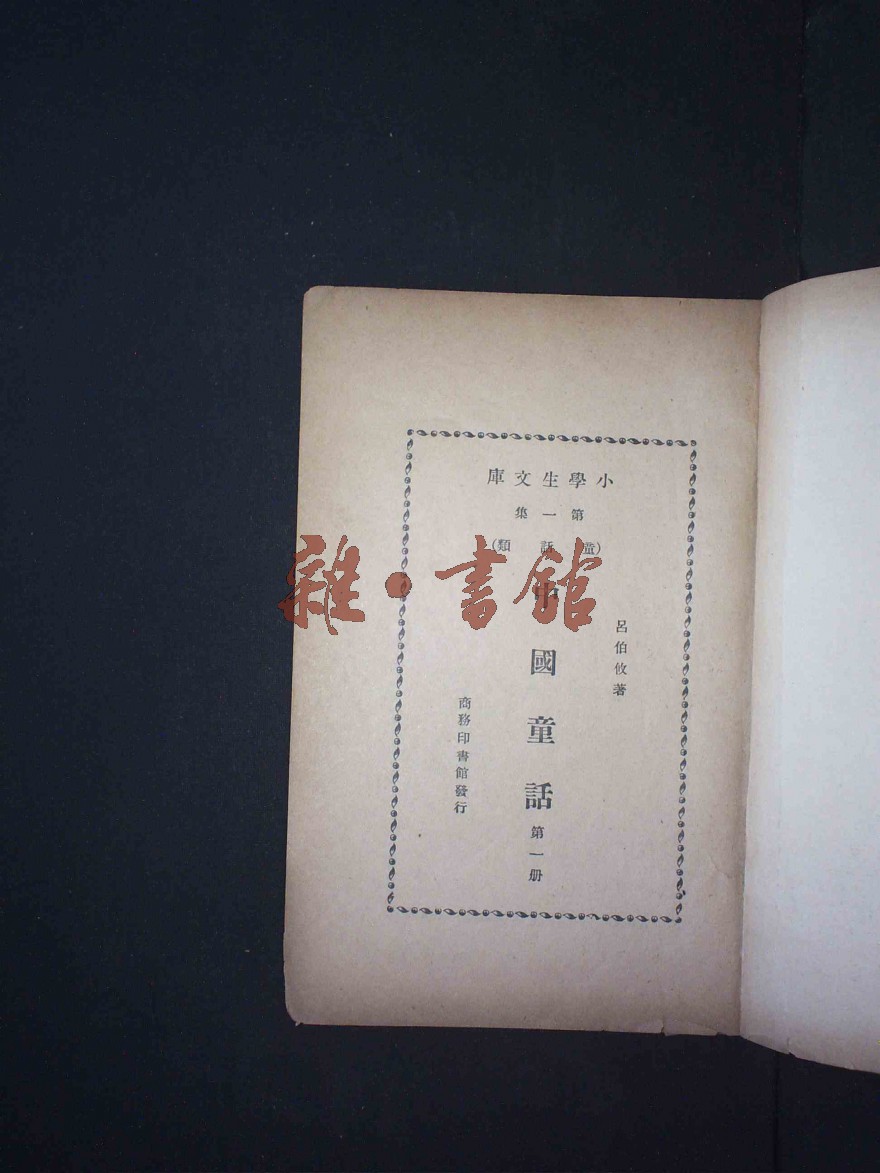 小學生文庫
第一集
(童話類)
呂伯攸著
中國童話
第一册
商務印書館發行
雜·書館